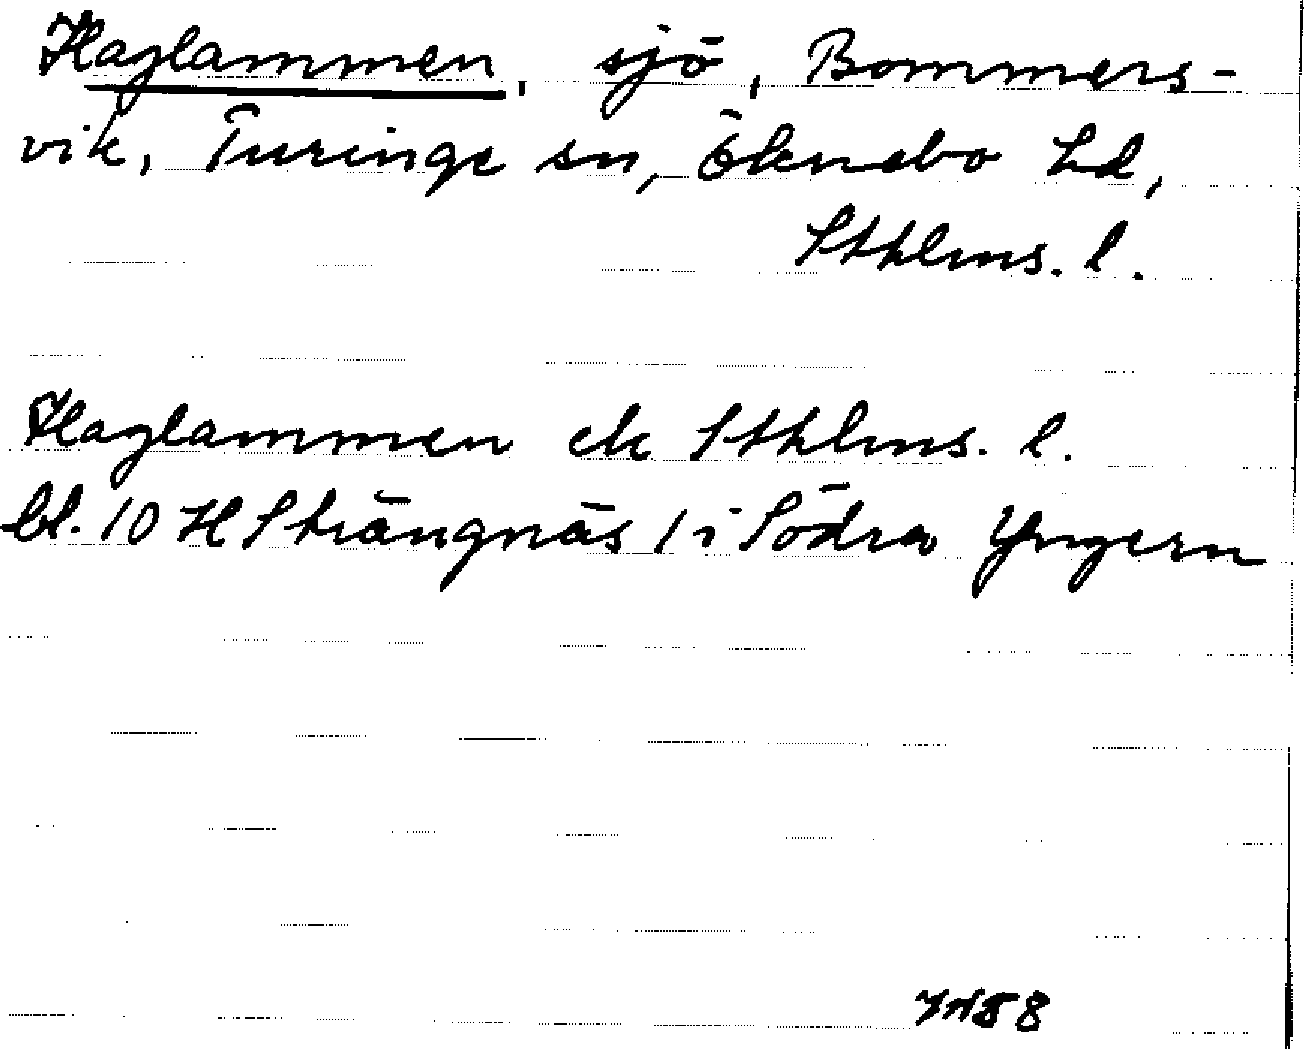 Haglammen, sjö, Bommers-
vik, Turinge sn, Öknebo hd,
Sthlms. l.
Haglammen ek Sthlms. l.
bl. 10 H Strängnäs / i Södra Yngern